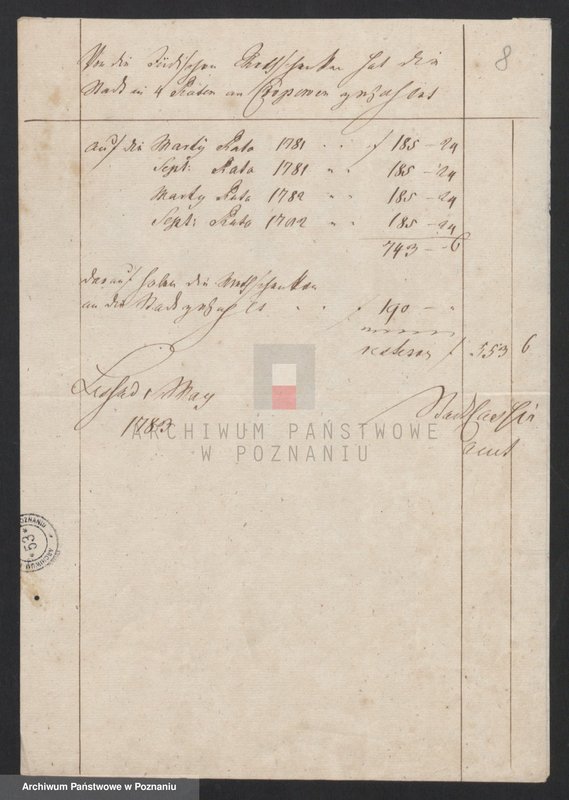 8
Von die Jüdischen hat die
Stadt in 4 Raten an gezahlet
auf die Marty Rata 1781 " " f 185 - 24
Sept: Rata 1781 " " 185 - 24
Marty Rata 1782 " " 185 - 24
Sept: Rata 1782 " " 185 - 24
743 - 6
darauf haben die
an die Stadt gezahlt " " f 190 - "
restiren f 553 6
May
1783
Amt
ARCHIWUM PAŃSTWOWE
W POZNANIU
53
Archiwum Państwowe w Poznaniu